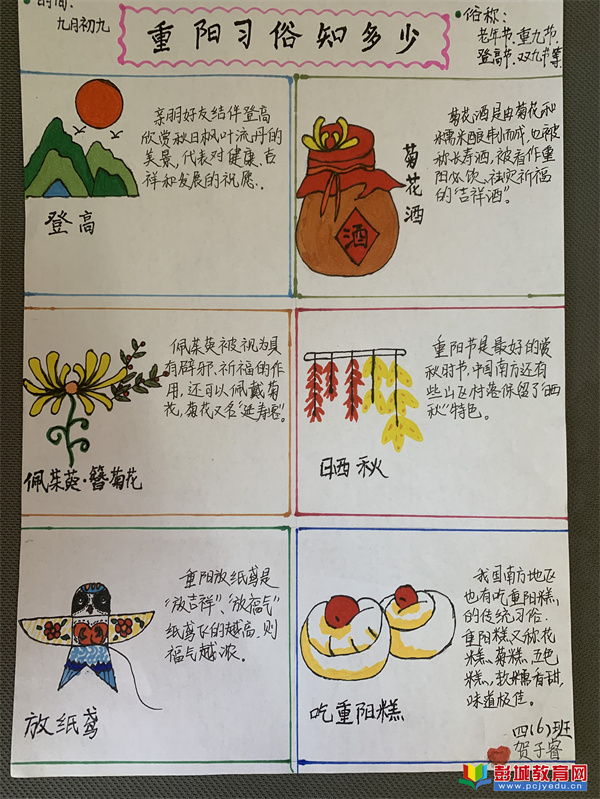 时间:
九月初九
重阳习俗知多少
俗称:
老年节.重九节.
登高节.双九节等
亲朋好友结伴登高
欣赏秋日枫叶流丹的
美景,代表对健康、吉
祥和发展的祝愿.
登高
菊花酒是由菊花和
糯米酿制而成,也被
称长寿酒,被看作重
阳必饮、祛灾祈福
的"吉祥酒"。
菊花酒
酒
佩茱萸被视为具
有辟邪、祈福的作
用,还可以佩戴菊
花,菊花又名"延寿客"。
佩茱萸·簪菊花
重阳节是最好的赏
秋时节,中国南方还有
些山区村落保留了"晒
秋"特色。
晒秋
重阳放纸鸢是
"放吉祥"、"放福气"
纸鸢飞的越高,则
福气越浓。
放纸鸢
我国南方地区
也有吃重阳糕
的传统习俗.
重阳糕又称花
糕、菊糕、五色
糕,软糯香甜,
味道极佳。
吃重阳糕
四(6)班
贺子睿
彭城教育网
www.pcjyedu.cn